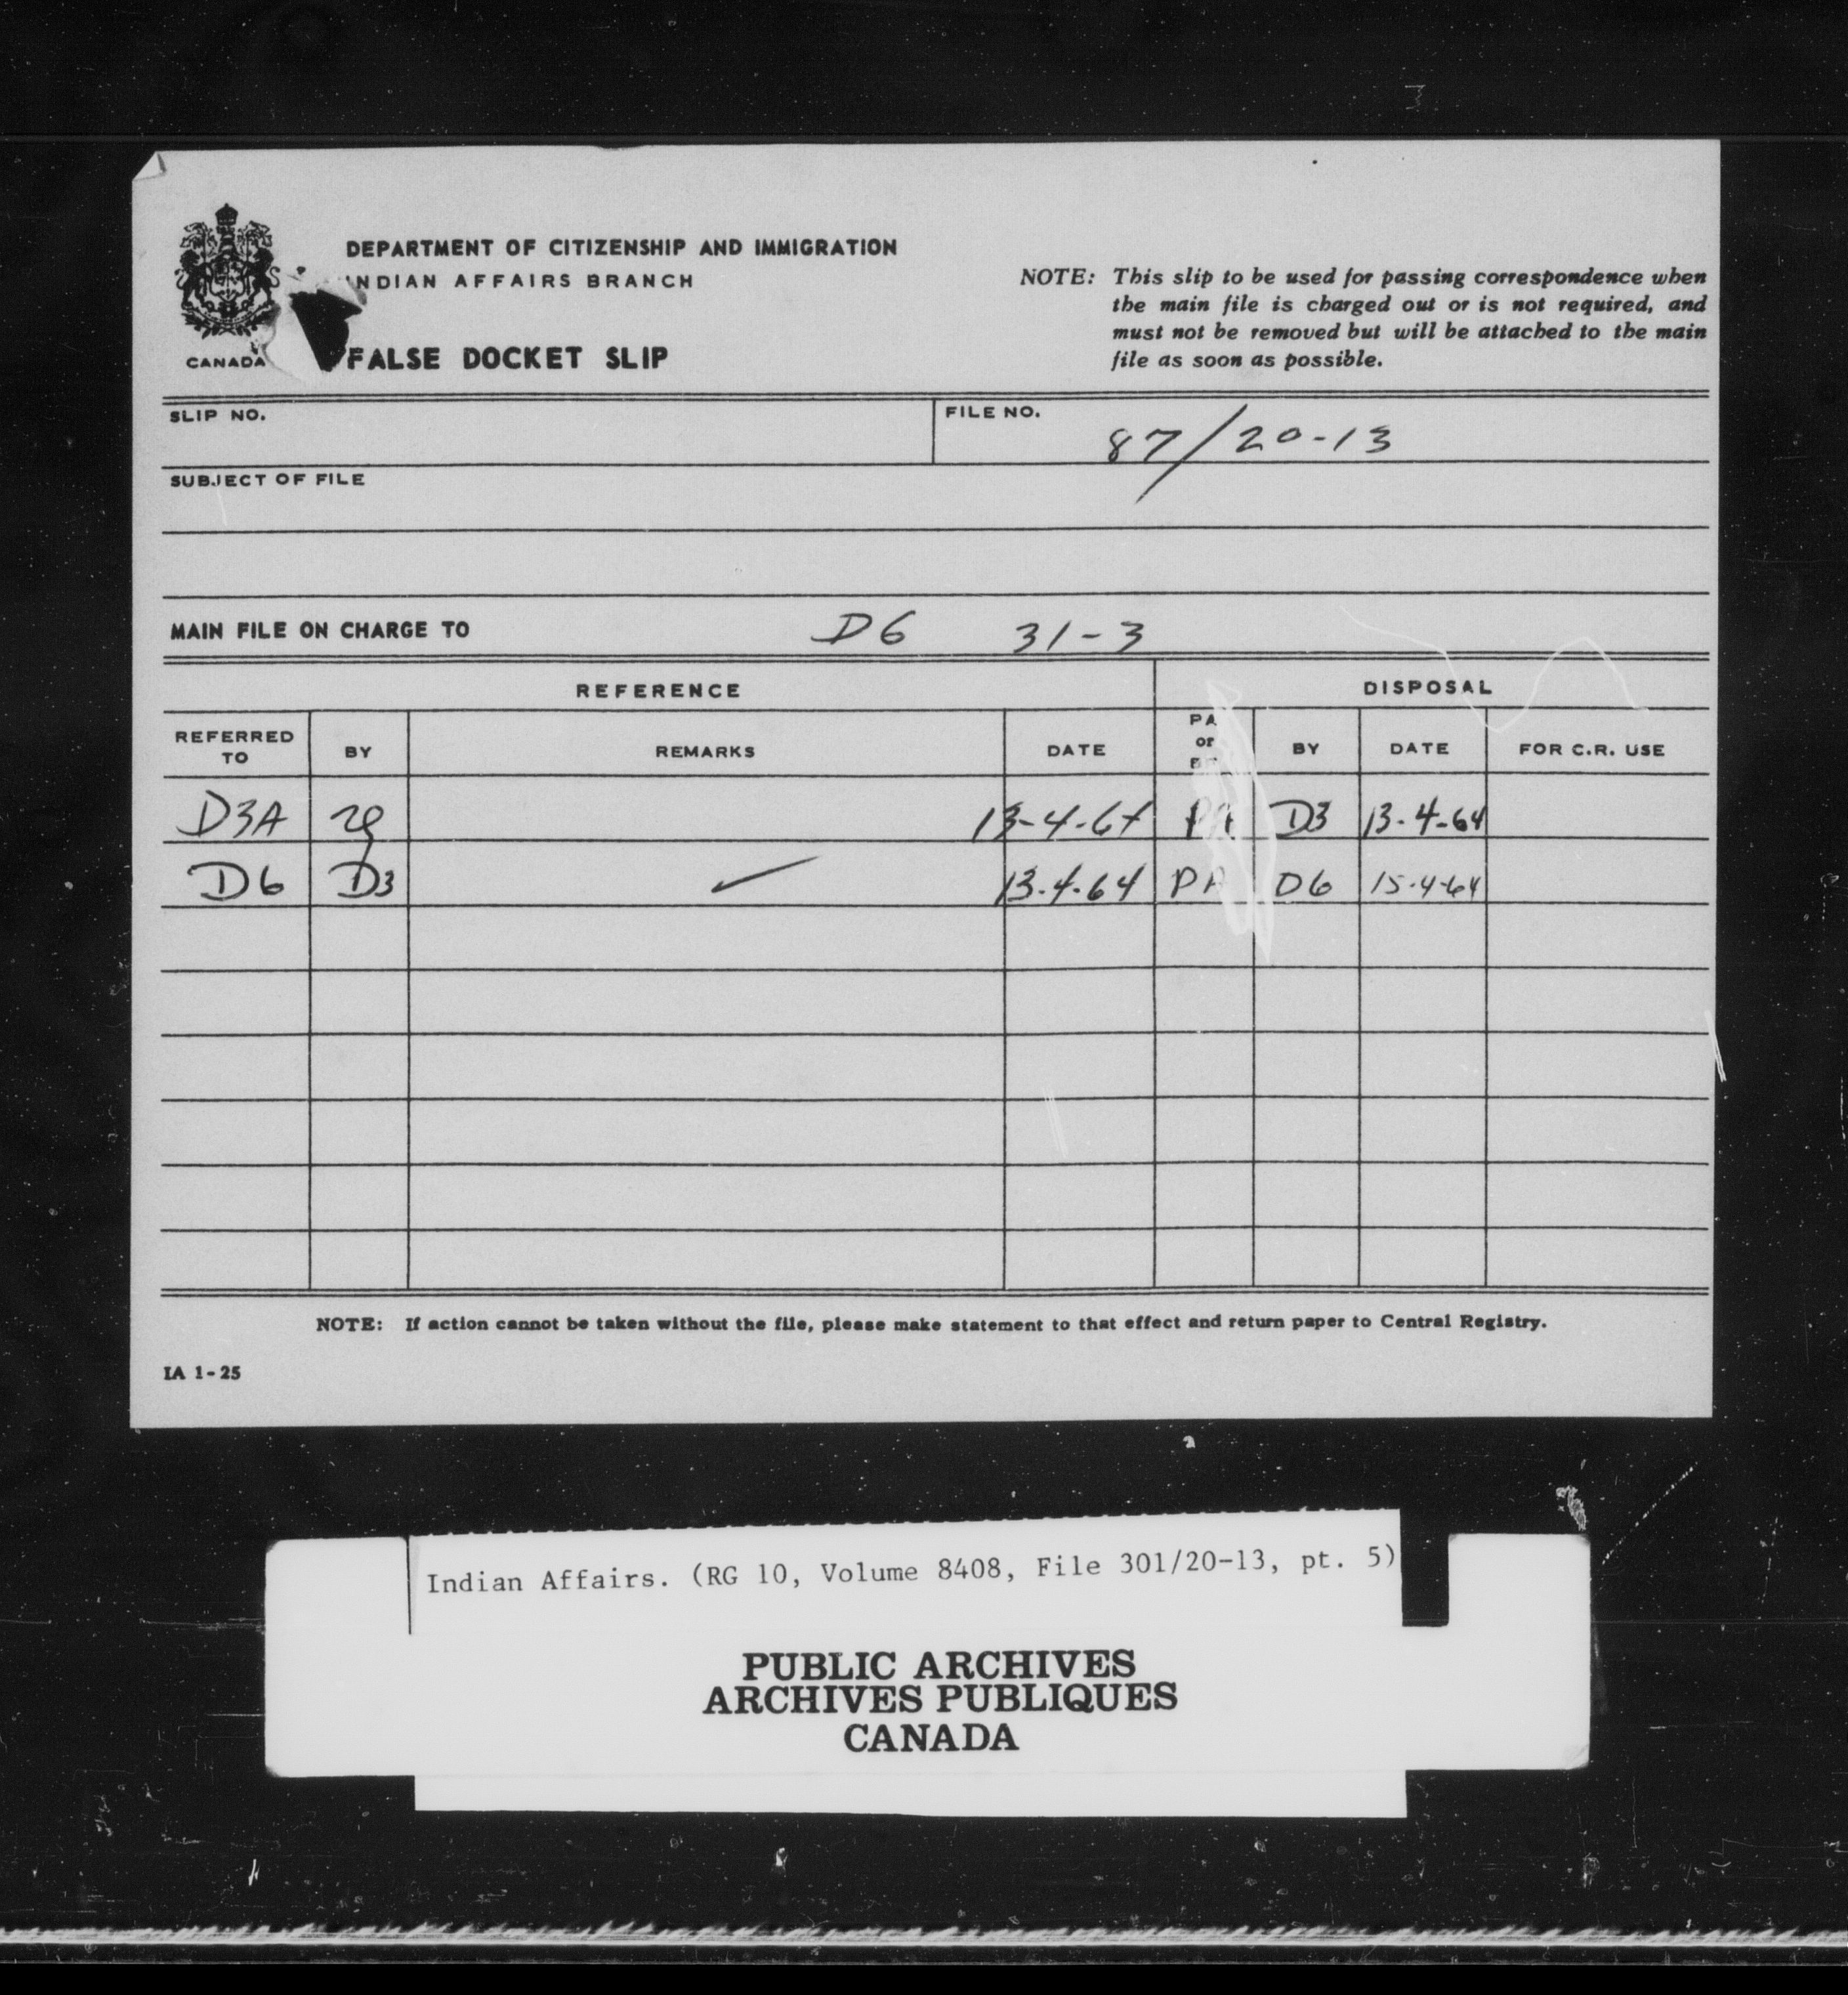 DEPARTMENT OF CITIZENSHIP AND IMMIGRATION
INDIAN AFFAIRS BRANCH
CANADA
FALSE DOCKET SLIP
NOTE: This slip to be used for passing correspondence when
the main file is charged out or is not required, and
must not be removed but will be attached to the main
file as soon as possible.
SLIP NO.
FILE NO. 87/20-13
SUBJECT OF FILE
MAIN FILE ON CHARGE TO D6 31-3
REFERENCE DISPOSAL
REFERRED TO BY REMARKS DATE PA or BF BY DATE FOR C.R. USE
D3A 13-4-64 PA D3 13-4-64
D6 D3 ✓ 13.4.64 PA D6 15-4-64
NOTE: If action cannot be taken without the file, please make statement to that effect and return paper to Central Registry.
IA 1-25
Indian Affairs. (RG 10, Volume 8408, File 301/20-13, pt. 5)
PUBLIC ARCHIVES
ARCHIVES PUBLIQUES
CANADA